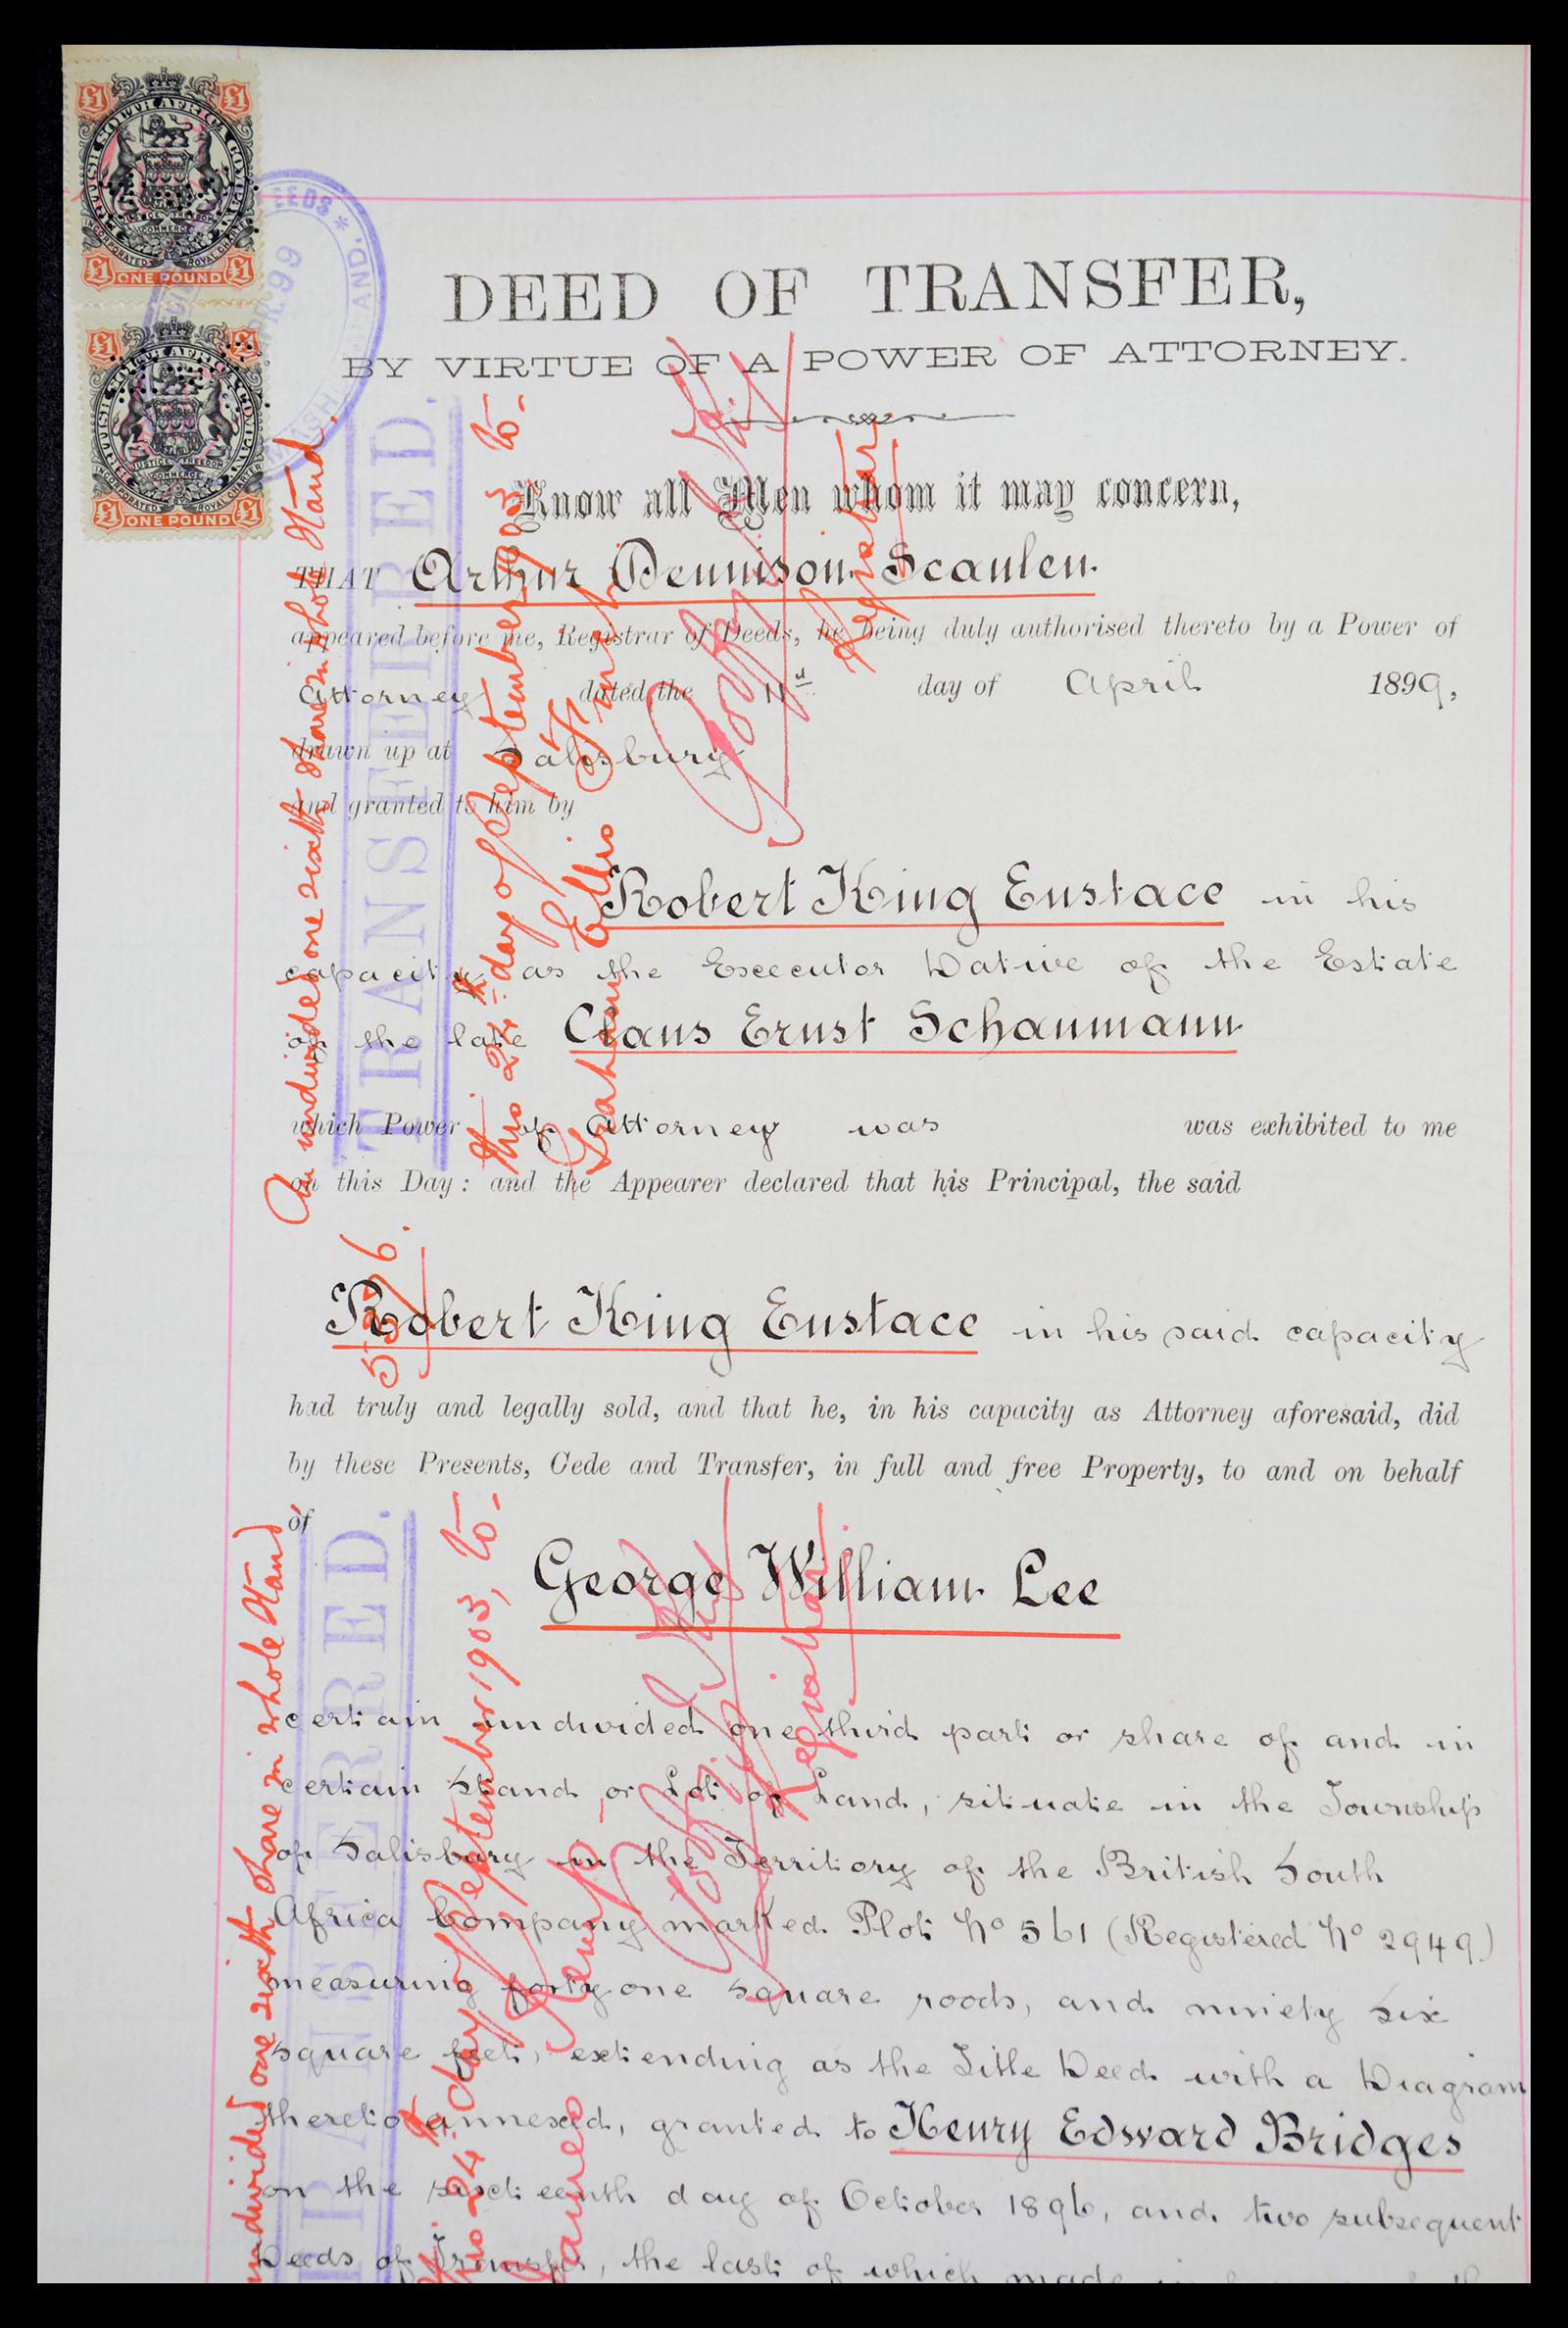 £1 £1
BRITISH SOUTH AFRICA COMPANY
JUSTICE FREEDOM
COMMERCE
INCORPORATED ROYAL CHARTER
£1 ONE POUND £1
£1 £1
BRITISH SOUTH AFRICA COMPANY
JUSTICE FREEDOM
COMMERCE
INCORPORATED ROYAL CHARTER
£1 ONE POUND £1
DEED OF TRANSFER,
BY VIRTUE OF A POWER OF ATTORNEY.
Know all Men whom it may concern,
THAT Arthur Dennison Scanlen
appeared before me, Registrar of Deeds, he being duly authorised thereto by a Power of
Attorney dated the day of April 1899,
drawn up at Salisbury
and granted to him by
Robert King Eustace in his
capacity as the Executor Dative of the Estate
of the late Claus Ernst Schaumann
which Power of Attorney was was exhibited to me
on this Day: and the Appearer declared that his Principal, the said
Robert King Eustace in his said capacity
had truly and legally sold, and that he, in his capacity as Attorney aforesaid, did
by these Presents, Cede and Transfer, in full and free Property, to and on behalf
of
George William Lee
certain undivided one third part or share of and in
certain Stand or Lot of Land, situate in the Township
of Salisbury in the Territory of the British South
Africa Company marked Plot No 561 (Registered No 2949)
measuring forty one square roods, and ninety six
square feet, extending as the Title Deed with a Diagram
thereto annexed, granted to Henry Edward Bridges
on the sixteenth day of October 1896, and two subsequent
Deeds of Transfer, the last of which made
An undivided one sixth share in whole Stand.
TRANSFERRED.
this 24th day of September 1903 to-
Graham Ellis
Registrar
undivided one sixth share in whole Stand
TRANSFERRED.
this 24th day of September 1903, to-
James
Registrar